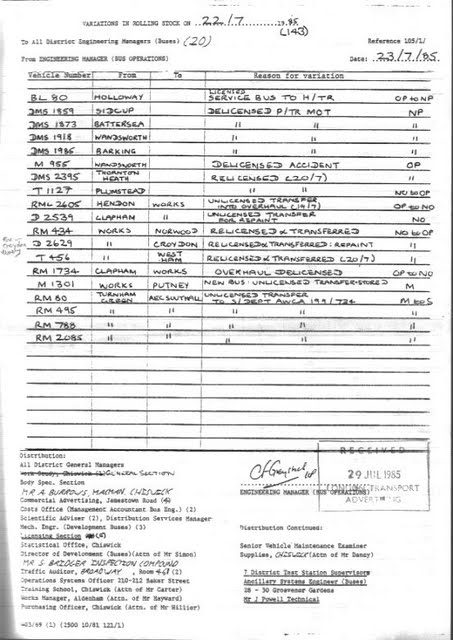 VARIATIONS IN ROLLING STOCK ON 22/7 1985
(143)
To All District Engineering Managers (Buses) (20) Reference 105/1/
From ENGINEERING MANAGER (BUS OPERATIONS) Date: 23/7/85
Vehicle Number From To Reason for variation
BL 80 HOLLOWAY LICENSED SERVICE BUS TO H/TR OP to NP
DMS 1859 SIDCUP DELICENSED P/TR MOT NP
DMS 1873 BATTERSEA " " "
DMS 1918 WANDSWORTH " " "
DMS 1986 BARKING " " "
M 955 WANDSWORTH DELICENSED ACCIDENT OP
DMS 2395 THORNTON HEATH RELICENSED (20/7) "
T 1127 PLUMSTEAD " " NO to OP
RML 2605 HENDON WORKS UNLICENSED TRANSFER INTO OVERHAUL (19/7) OP to NO
D 2539 CLAPHAM " UNLICENSED TRANSFER FOR REPAINT NO
RM 434 WORKS NORWOOD RELICENSED & TRANSFERRED NO to OP
D 2629 " CROYDON RELICENSED & TRANSFERRED : REPAINT "
T 456 " WEST HAM RELICENSED & TRANSFERRED (20/7) "
RM 1734 CLAPHAM WORKS OVERHAUL DELICENSED OP to NO
M 1301 WORKS PUTNEY NEW BUS : UNLICENSED TRANSFER-STORED M
RM 80 TURNHAM GREEN AEC SOUTHALL UNLICENSED TRANSFER TO S/DEPT AWCA 199/724 M to S
RM 495 " " " " "
RM 788 " " " " "
RM 2085 " " " " "
Distribution:
All District General Managers
Work Study, Chiswick GENERAL SECTION
Body Spec. Section
MR A BURROWS, CHISWICK
Commercial Advertising, Jamestown Road
Costs Office (Management Accountant Bus Eng.) (2)
Scientific Adviser (2), Distribution Services Manager
Mech. Engr. (Development Buses) (3)
Licensing Section
Statistical Office, Chiswick
Director of Development (Buses)(Attn of Mr Simon)
MR S. BRIDGER INSPECTION COMPOUND
Traffic Auditor, BROADWAY, Room
Operations Systems Officer 210-212 Baker Street
Training School, Chiswick (Attn of Mr Carter)
Works Manager, Aldenham (Attn of Mr Hayward)
Purchasing Officer, Chiswick (Attn of Mr Hillier)
ENGINEERING MANAGER (BUS OPERATIONS)
RECEIVED
29 JUL 1985
LONDON TRANSPORT
ADVERTISING
Distribution Continued:
Senior Vehicle Maintenance Examiner
Supplies, CHISWICK (Attn of Mr Dancy)
7 District Test Station Supervisors
Ancillary Systems Engineer (Buses)
28 - 30 Grosvenor Gardens
Mr J Powell Technical
403/69 (1) (2500 10/81 121/1)